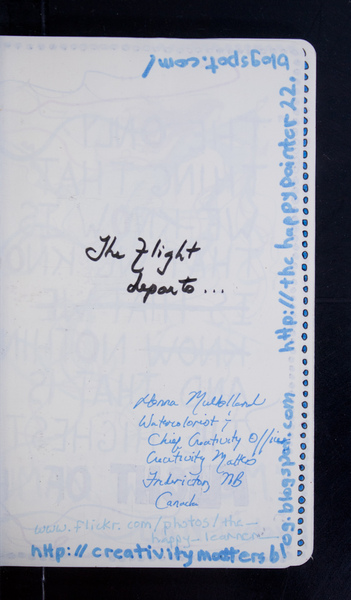 The Flight
departs...
Donna Mulholland
Watercolorist &
Chief Creativity Officer
Creativity Matters
Fredericton, NB
Canada
www.flickr.com/photos/the_
happy_learner
http://creativitymattersblog.blogspot.com
http://thehappypainter22.blogspot.com/